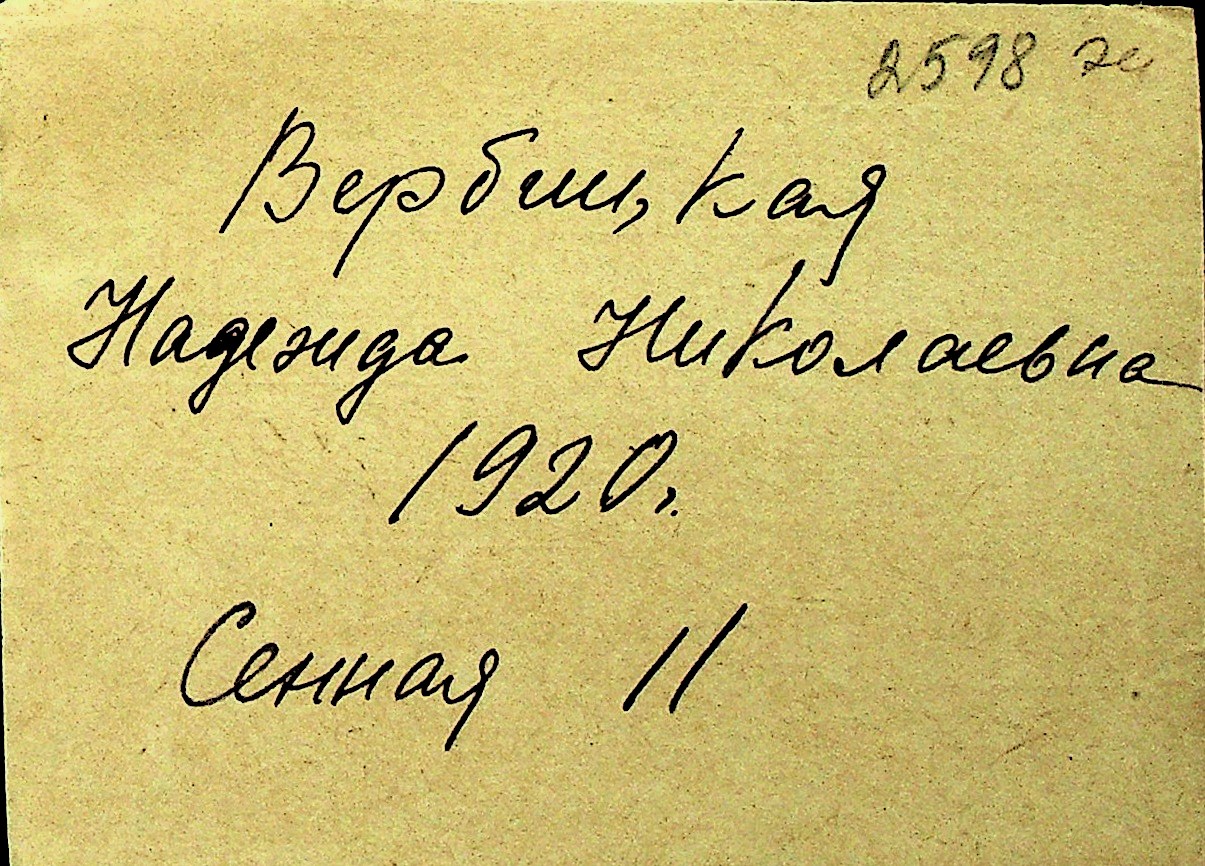 2598
Вербицкая
Надежда Николаевна
1920г.
Сенная 11